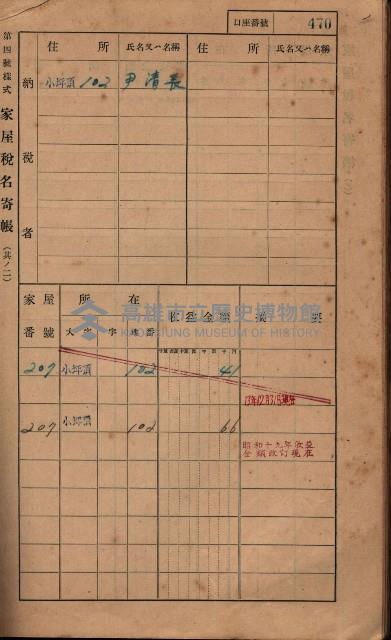 口座番號 470
第四號樣式 家屋稅名寄帳 (其ノ二)
納稅者
住所 氏名又ハ名稱 住所 氏名又ハ名稱
小坪頂 102 尹清長
家屋番號 所在 收益金額 摘要
大字 字 地番
207 小坪頂 102 41
207 小坪頂 102 66
昭和十九年收益
金額改訂現在
高雄市立歷史博物館
KAOHSIUNG MUSEUM OF HISTORY